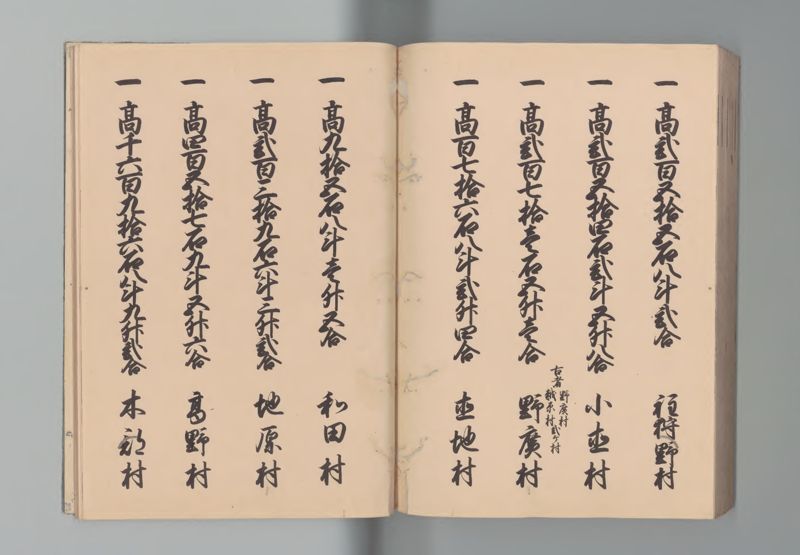 一 高弐百五拾五石八斗弐合 狩野村
一 高弐百五拾四石弐斗五升八合 小直村
古者 野広村 村弐ケ村
一 高弐百七拾壱石五升壱合 野廣村
一 高百七拾六石八斗弐升四合 直地村
一 高九拾五石八斗壱升五合 和田村
一 高弐百三拾九石六斗三升弐合 地原村
一 高四百五拾七石九斗五升六合 高野村
一 高千六百九拾六石八斗九升弐合 木部村